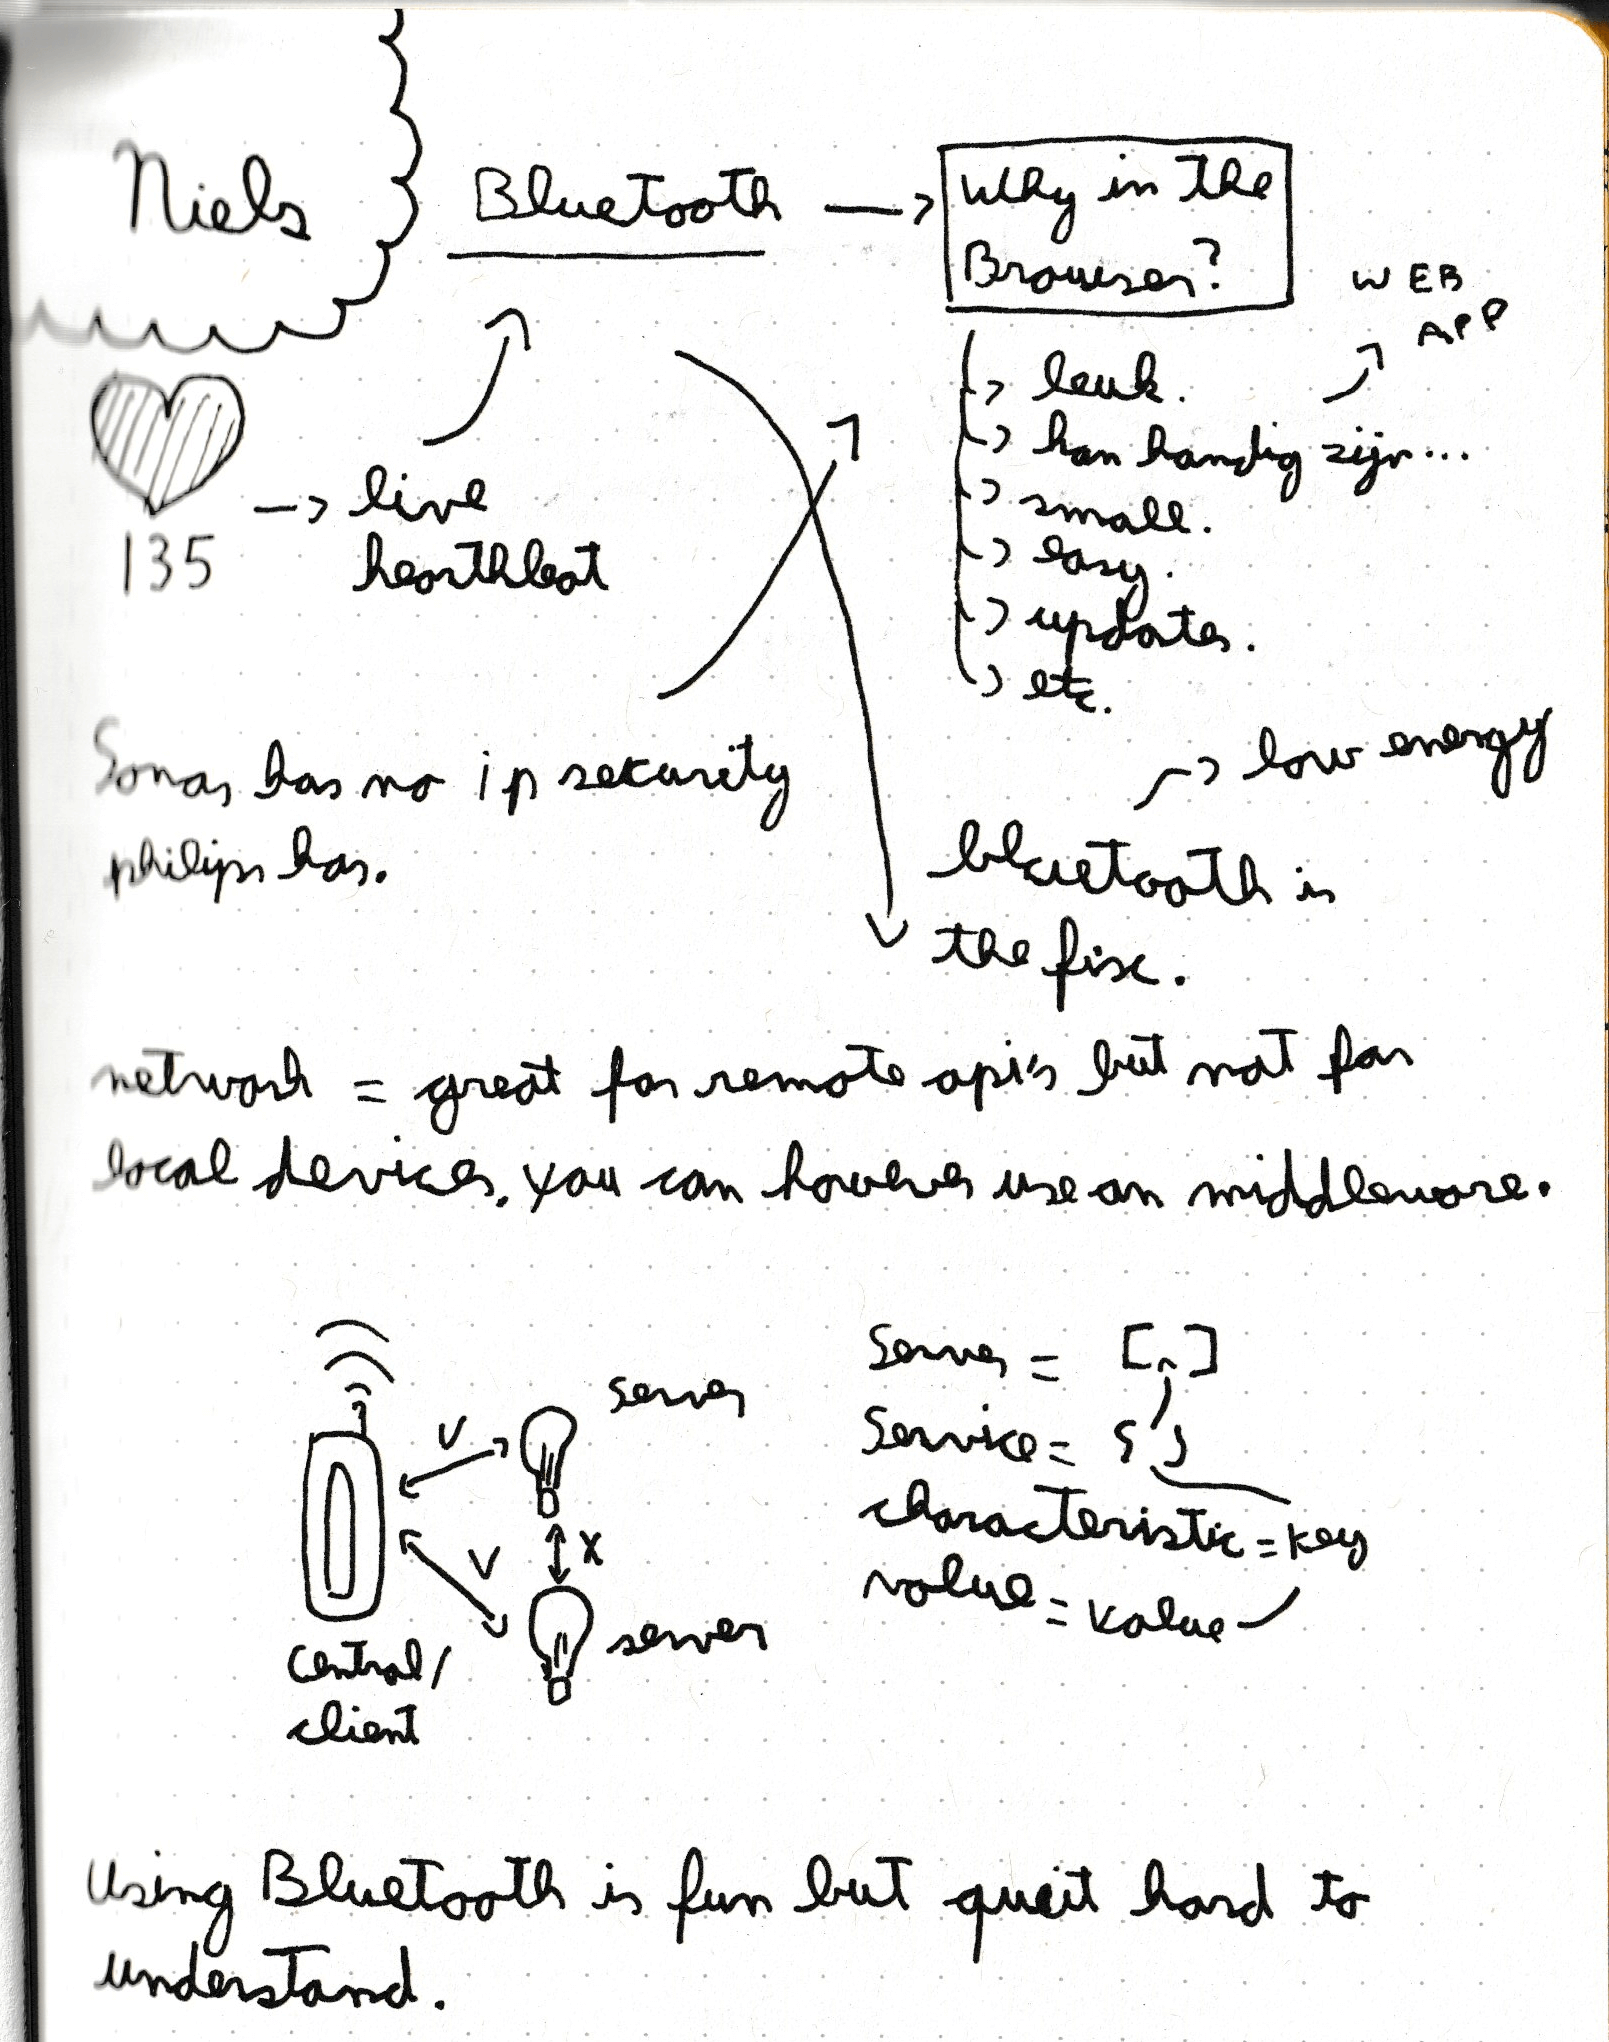 Niels
Bluetooth → Why in the
Browser?
WEB
APP
→ leuk.
→ kan handig zijn...
→ small.
→ easy.
→ updates.
→ etc.
135
→ live
hearthbeat
Sonos has no ip security
philips has.
→ low energy
bluetooth is
the fix.
network = great for remote api's but not for
local devices. You can however use an middleware.
server
V
X
V
server
central/
client
Server = [,]
Service = { }
characteristic = key
value = value
Using Bluetooth is fun but queit hard to
understand.